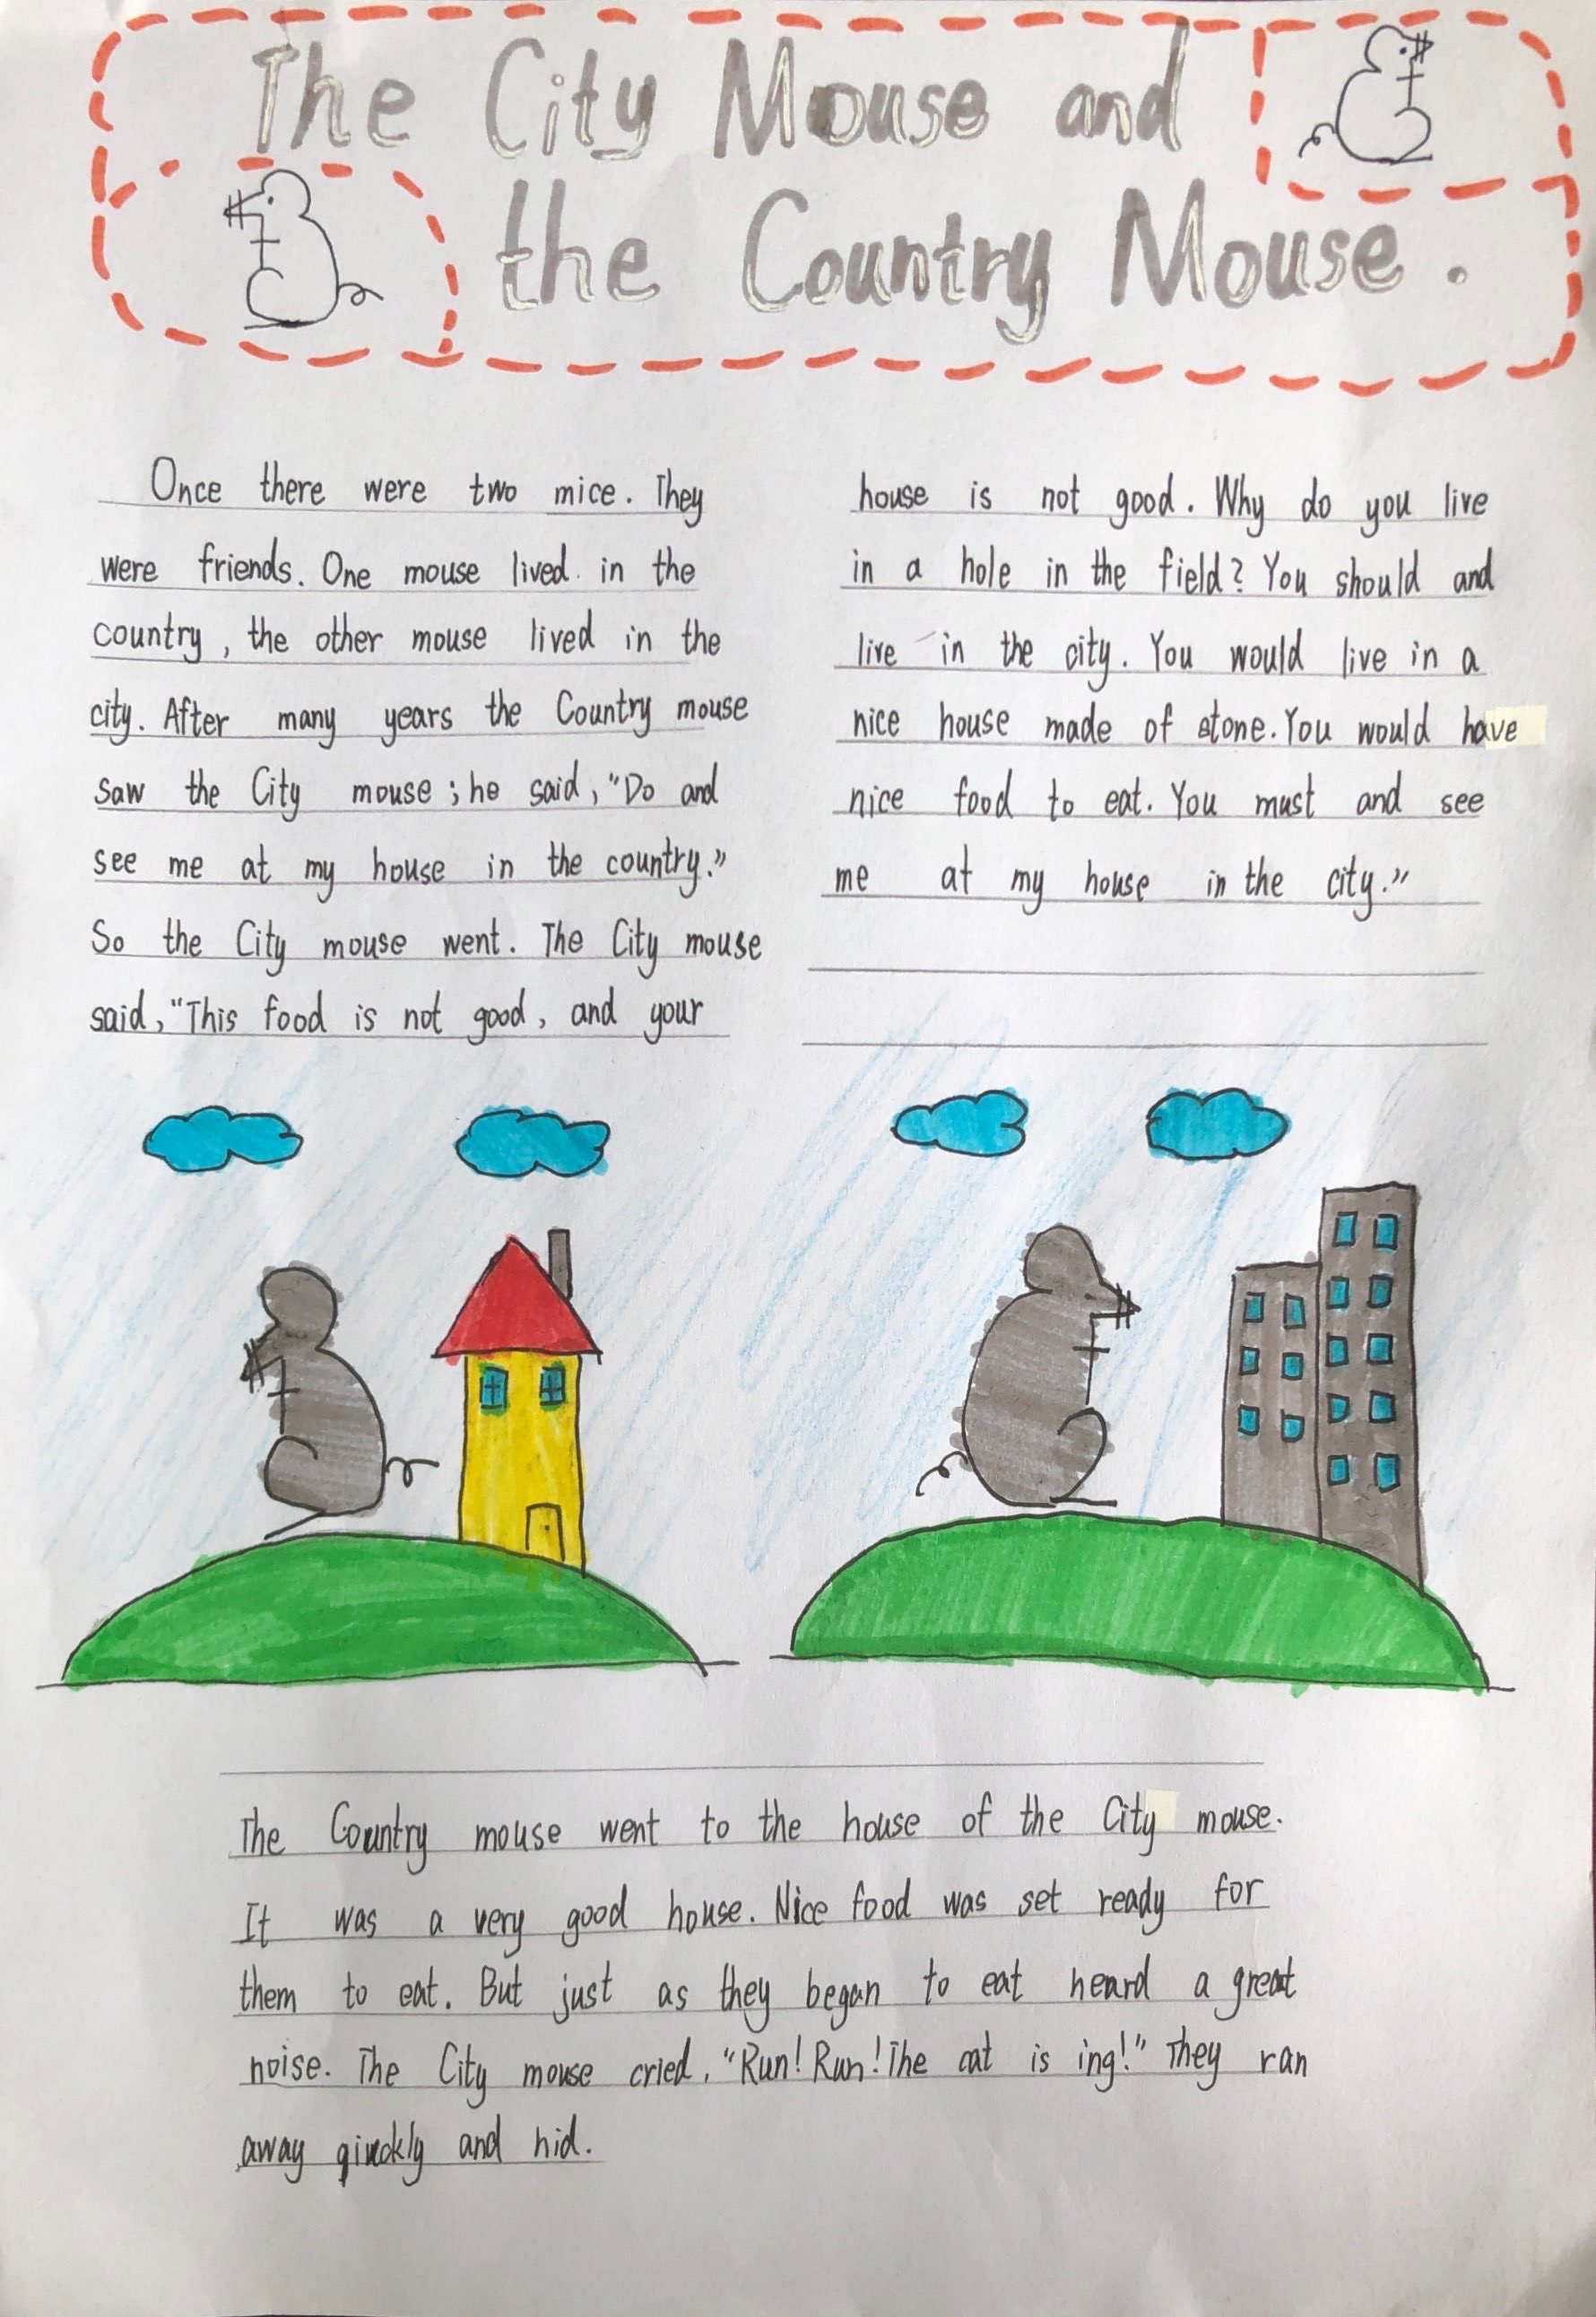 The City Mouse and
the Country Mouse.
Once there were two mice. They
were friends. One mouse lived in the
country, the other mouse lived in the
city. After many years the Country mouse
saw the City mouse; he said, "Do and
see me at my house in the country."
So the City mouse went. The City mouse
said, "This food is not good, and your
house is not good. Why do you live
in a hole in the field? You should and
live in the city. You would live in a
nice house made of stone. You would have
nice food to eat. You must and see
me at my house in the city."
The Country mouse went to the house of the City mouse.
It was a very good house. Nice food was set ready for
them to eat. But just as they began to eat heard a great
noise. The City mouse cried, "Run! Run! The cat is ing!" They ran
away and hid.